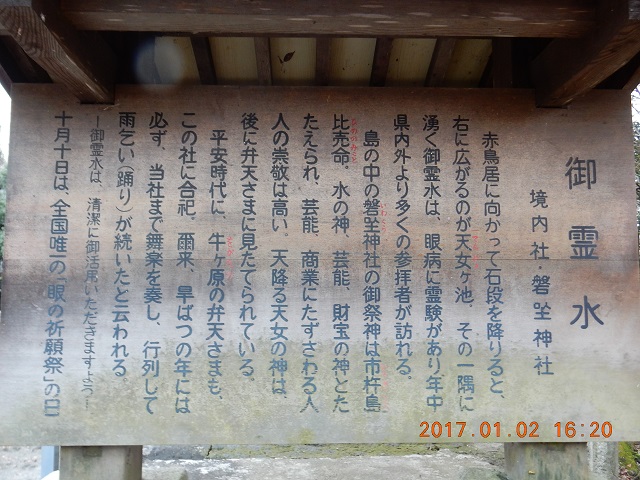 御霊水
境内社・磐坐神社
赤鳥居に向かって石段を降りると、
右に広がるのが天女ヶ池、その一隅に
湧く御霊水は、眼病に霊験があり、年中
県内外より多くの参拝者が訪れる。
島の中の磐坐神社の御祭神は市杵島
比売命。水の神、芸能、財宝の神とた
たえられ、芸能、商業にたずさわる人
人の崇敬は高い、天降る天女の神は、
後に弁天さまに見たてられている。
平安時代に、牛ヶ原の弁天さまも、
この社に合祀、爾来、旱ばつの年には
必ず、当社まで舞楽を奏し、行列して
雨乞い（踊り）が続いたと云われる
―御霊水は、清潔に御活用いただきますよう…
十月十日は、全国唯一の「眼の祈願祭」の日
2017.01.02 16:20